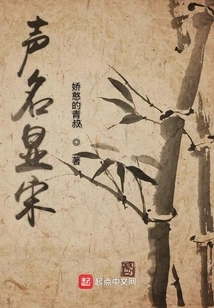 声名显宋
娇憨的青叔
◎
著
起点 起点中文网